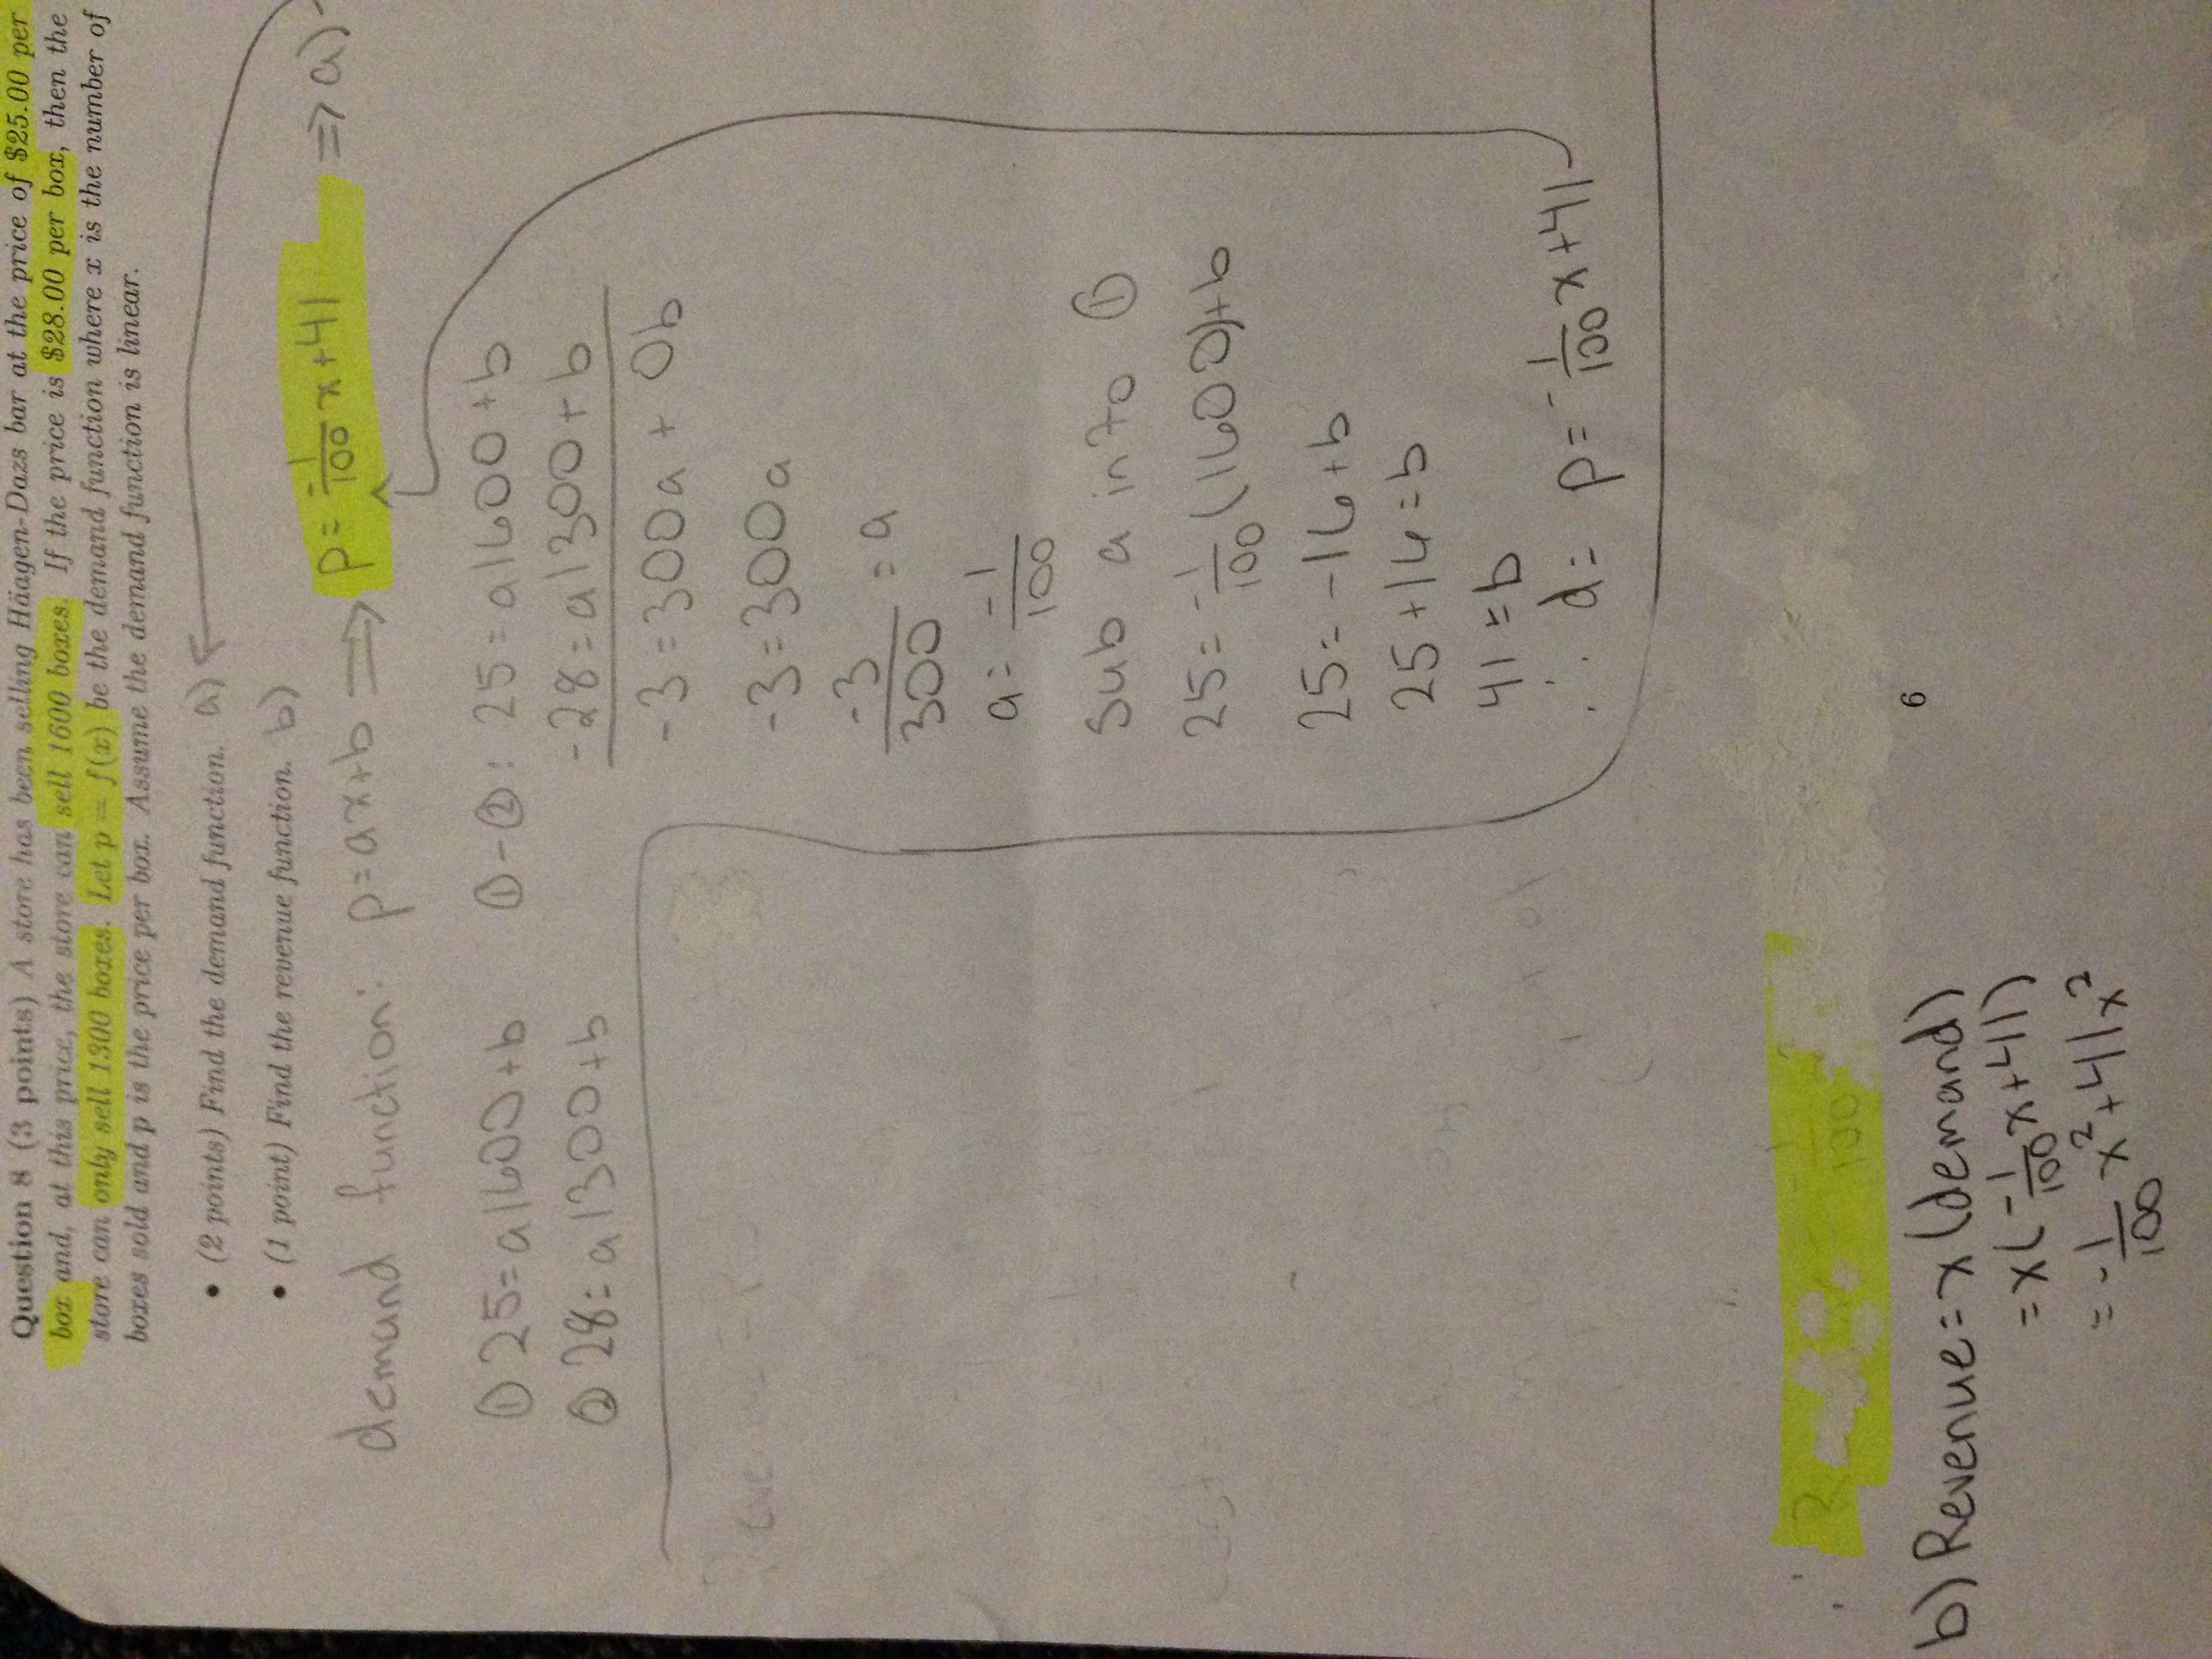 Question 8 (3 points) A store has been selling Häagen-Dazs bar at the price of $25.00 per
box and, at this price, the store can sell 1600 boxes. If the price is $28.00 per box, then the
store can only sell 1300 boxes. Let p = f(x) be the demand function where x is the number of
boxes sold and p is the price per box. Assume the demand function is linear.
• (2 points) Find the demand function. a)
• (1 point) Find the revenue function. b)
demand function: p=ax+b ⟹ p=-1/100 x+41 ⇒ a)
① 25=a1600+b
② 28=a1300+b
①-②: 25=a1600+b
-28=a1300+b
-3=300a+0b
-3=300a
-3/300=a
a=-1/100
Sub a into ①
25=-1/100(1600)+b
25=-16+b
25+16=b
41=b
∴ d= p=-1/100 x+41
6
b) Revenue=x(demand)
=x(-1/100 x+41)
=-1/100 x²+41x²